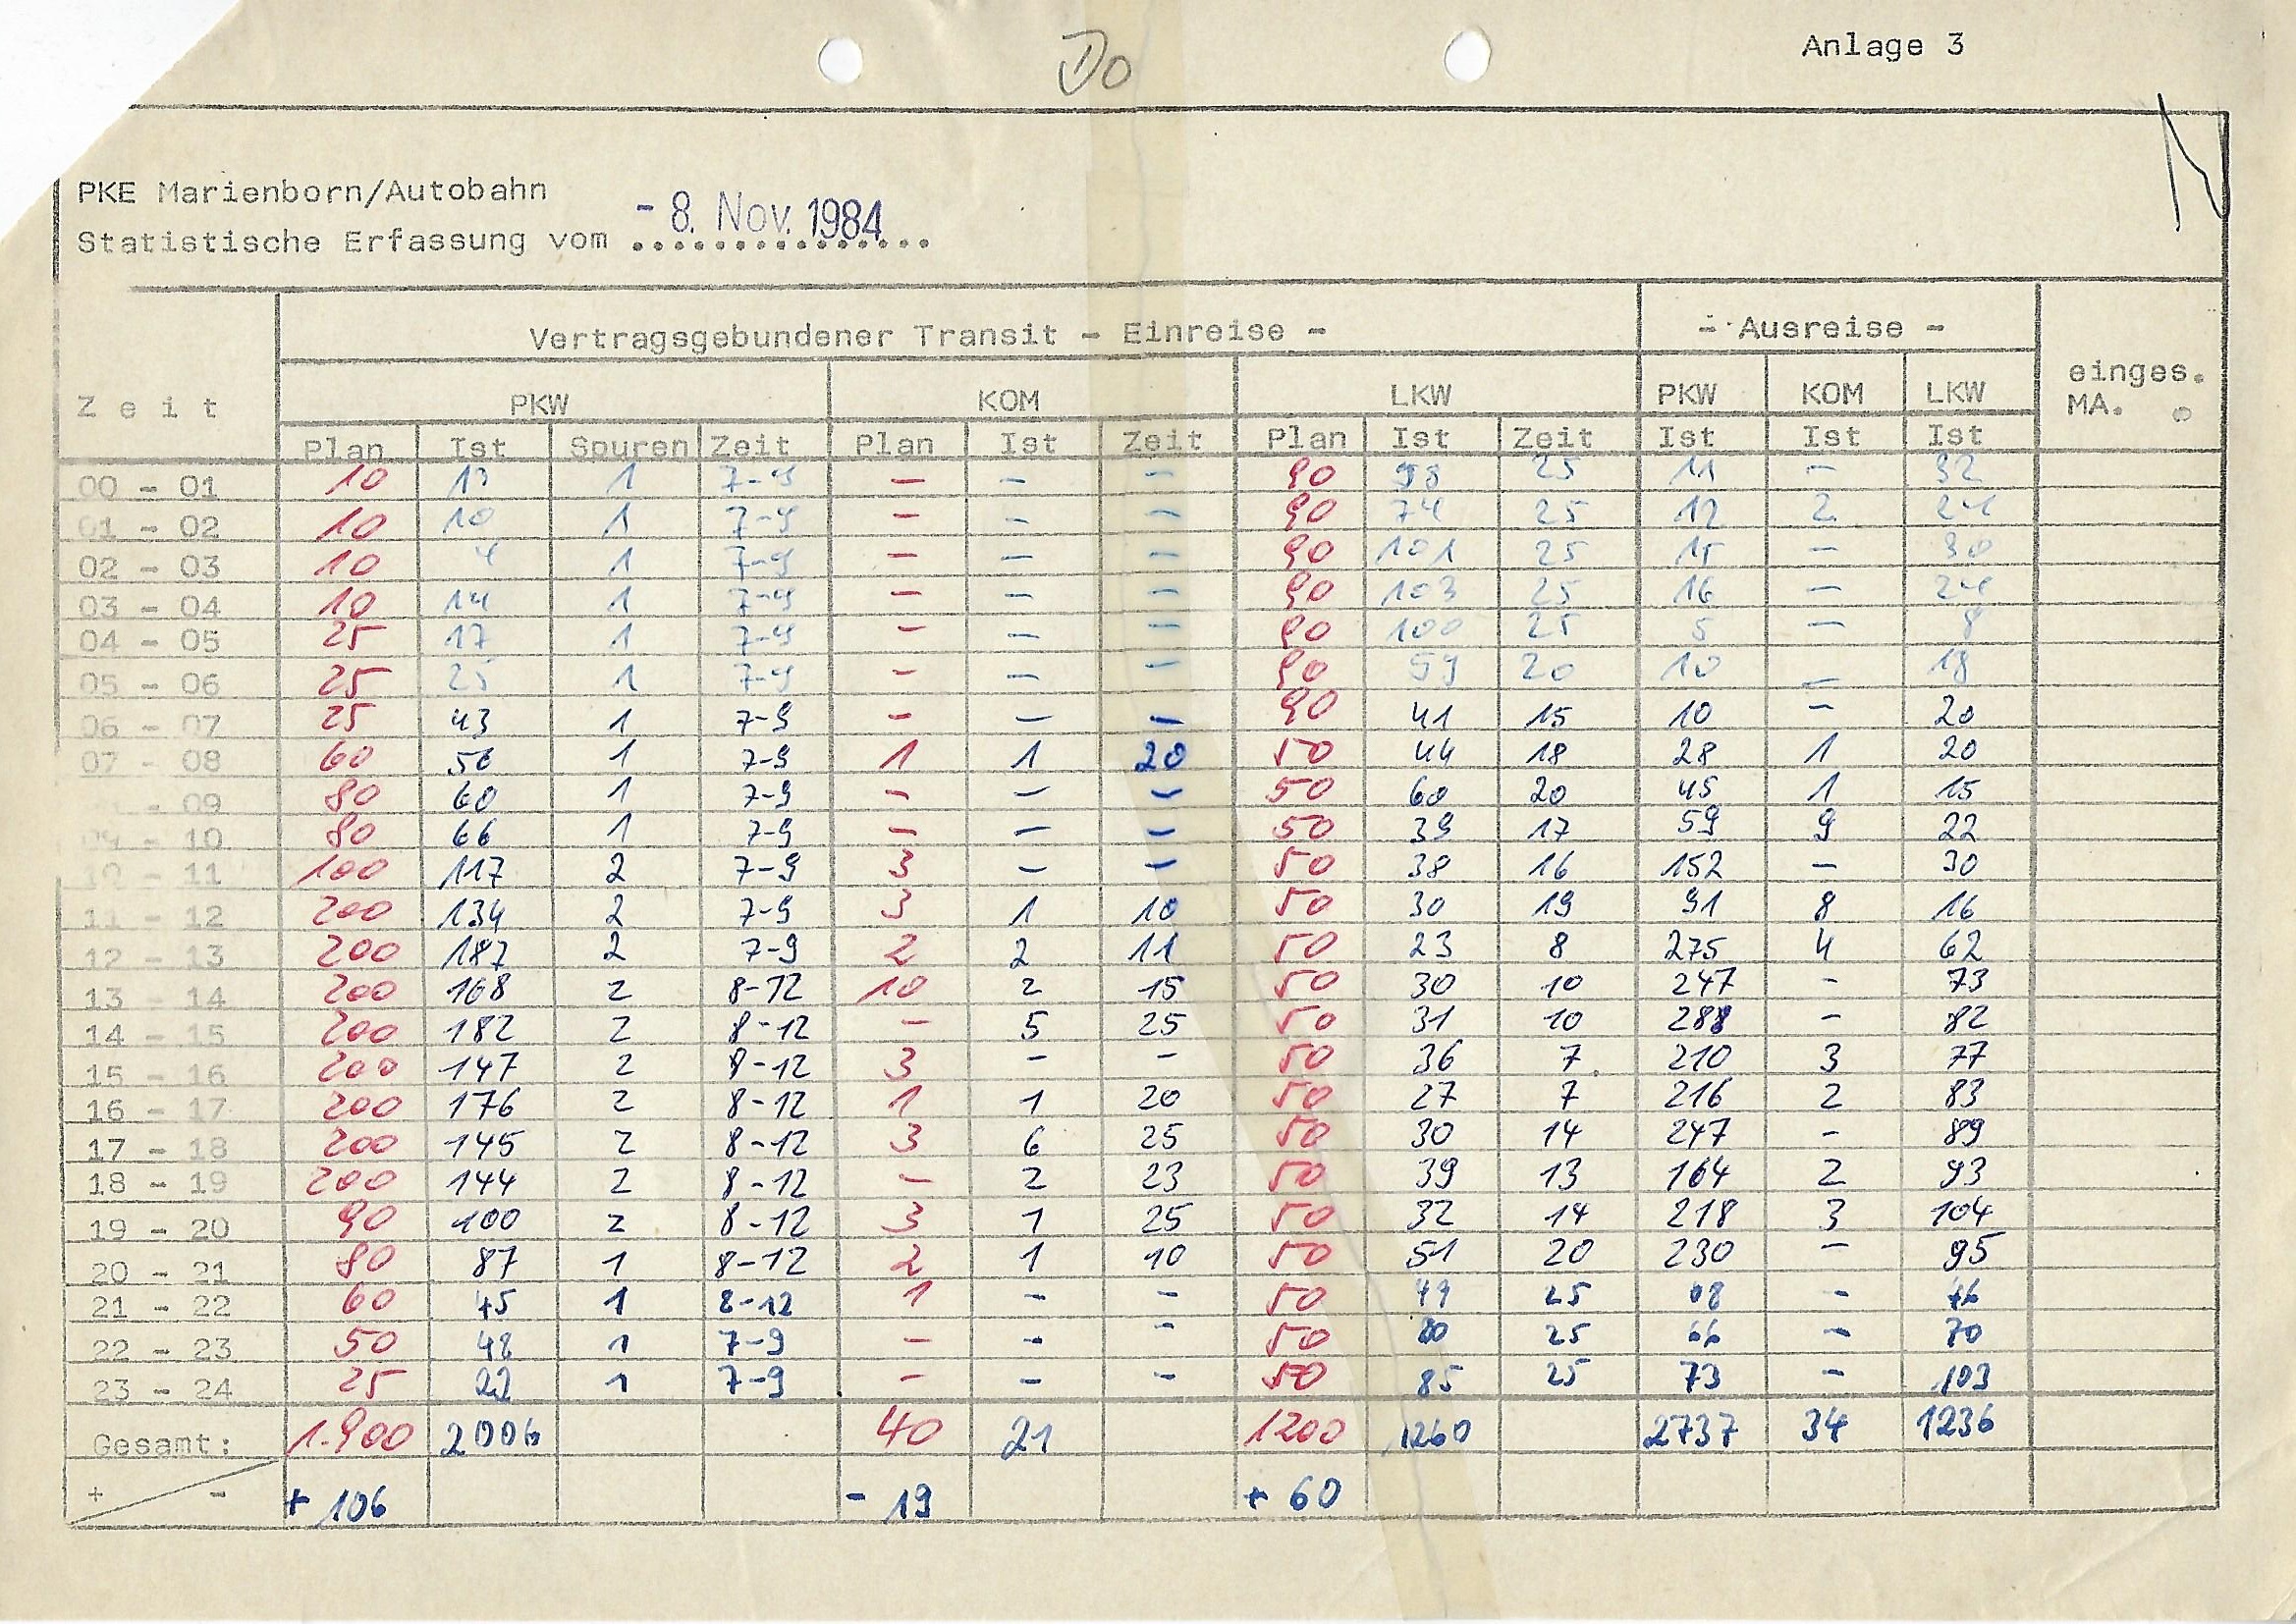 Do
Anlage 3
PKE Marienborn/Autobahn
Statistische Erfassung vom - 8. Nov. 1984
Vertragsgebundener Transit - Einreise - - Ausreise -
Zeit PKW KOM LKW PKW KOM LKW einges. MA.
Plan Ist Spuren Zeit Plan Ist Zeit Plan Ist Zeit Ist Ist Ist
00 - 01 10 13 1 7-9 - - - 90 98 25 11 - 32
01 - 02 10 10 1 7-9 - - - 90 74 25 12 2 24
02 - 03 10 4 1 7-9 - - - 90 101 25 15 - 30
03 - 04 10 14 1 7-9 - - - 90 103 25 16 - 24
04 - 05 25 17 1 7-9 - - - 90 100 25 5 - 8
05 - 06 25 25 1 7-9 - - - 90 59 20 10 - 18
06 - 07 25 43 1 7-9 - - - 90 41 15 10 - 20
07 - 08 60 50 1 7-9 1 1 20 50 44 18 28 1 20
- 09 80 60 1 7-9 - - - 50 60 20 45 1 15
09 - 10 80 66 1 7-9 - - - 50 39 17 59 9 22
10 - 11 100 117 2 7-9 3 - - 50 38 16 152 - 30
11 - 12 200 134 2 7-9 3 1 10 50 30 19 91 8 16
12 - 13 200 187 2 7-9 2 2 11 50 23 8 275 4 62
13 - 14 200 168 2 8-12 10 2 15 50 30 10 247 - 73
14 - 15 200 182 2 8-12 - 5 25 50 31 10 288 - 82
15 - 16 200 147 2 8-12 3 - - 50 36 7 210 3 77
16 - 17 200 176 2 8-12 1 1 20 50 27 7 216 2 83
17 - 18 200 145 2 8-12 3 6 25 50 30 14 247 - 89
18 - 19 200 144 2 8-12 - 2 23 50 39 13 164 2 93
19 - 20 90 100 2 8-12 3 1 25 50 32 14 218 3 104
20 - 21 80 87 1 8-12 2 1 10 50 51 20 230 - 95
21 - 22 60 45 1 8-12 1 - - 50 49 25 - 46
22 - 23 50 48 1 7-9 - - - 50 80 25 66 - 70
23 - 24 25 22 1 7-9 - - - 50 85 25 73 - 103
Gesamt: 1.900 2006 40 21 1200 1260 2737 34 1236
+ - + 106 - 19 + 60